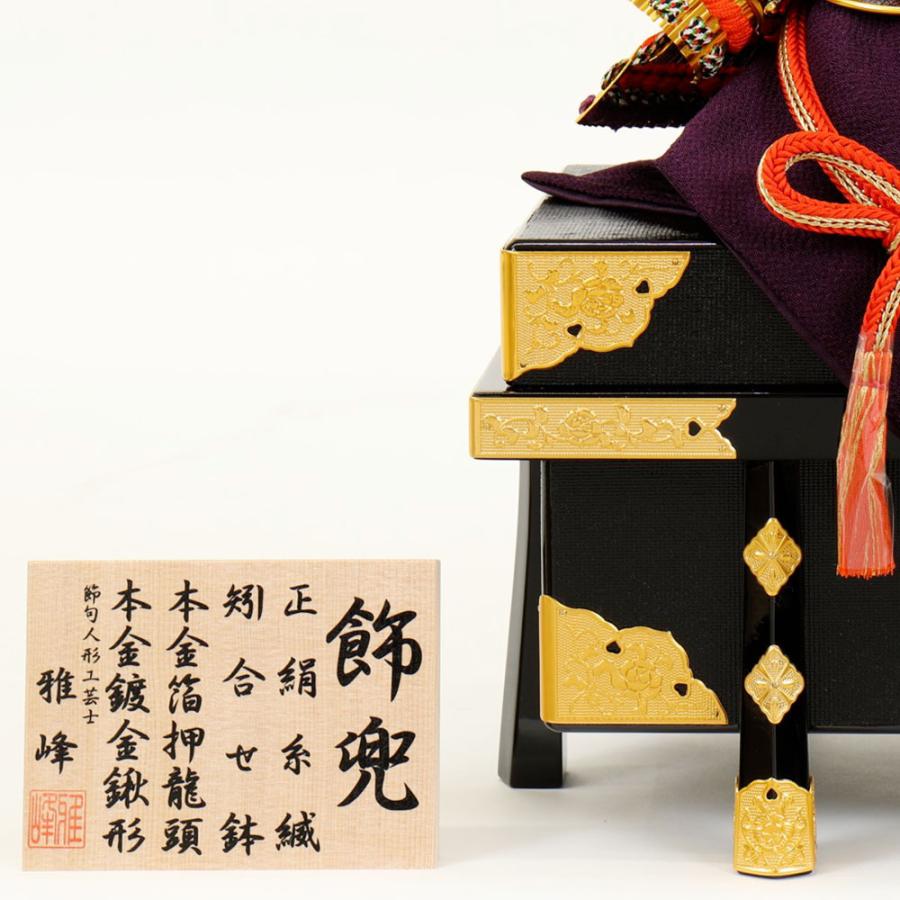 飾兜
正絹糸縅
矧合せ鉢
本金箔押龍頭
本金鍍金鍬形
節句人形工芸士
雅峰
雅峰